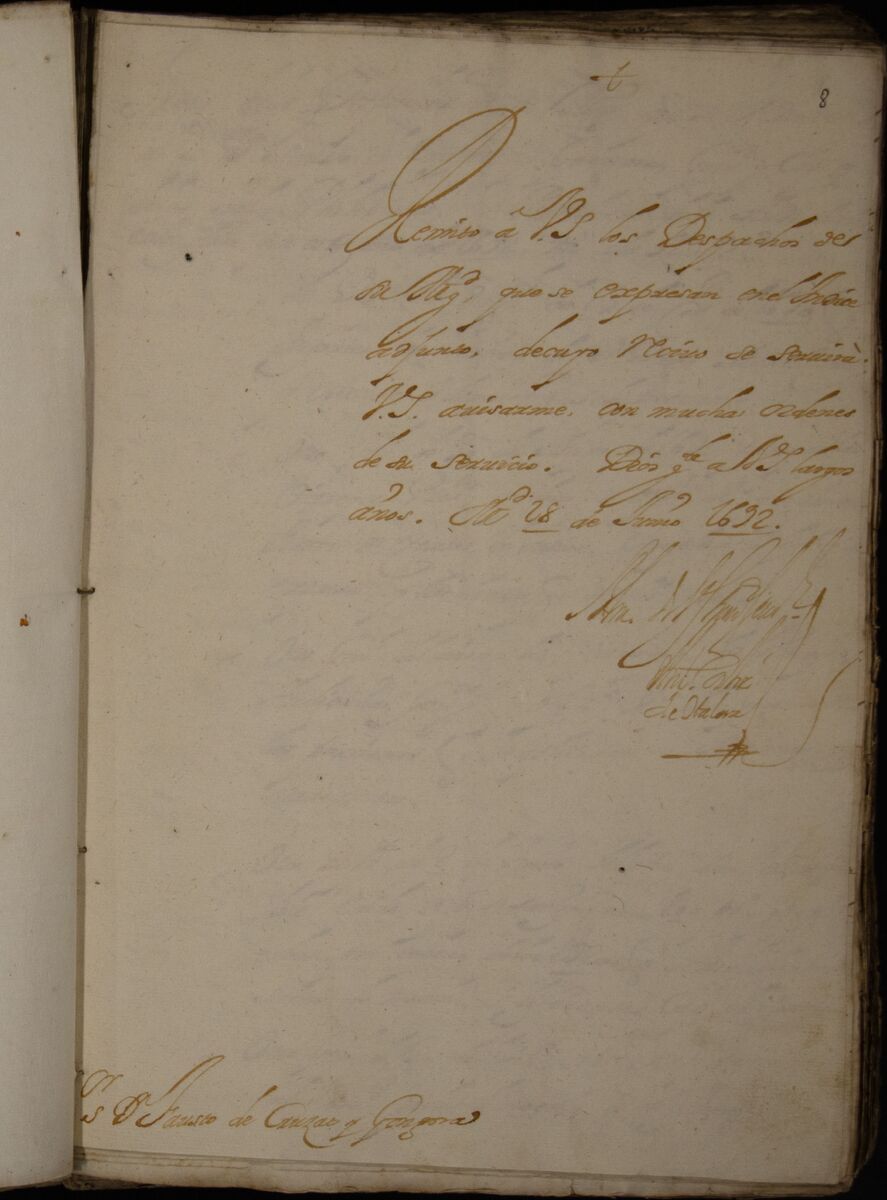 8
Remito â V.S. los Despachos de
su Mag^d, que se expresan en el Indice
adjunto, de cuyo recivo se servirà
V.S. avisarme, con muchas ordenes
de su servicio. Dios g^de a V.S. largos
años. M^d 28 de Junio 1692.
de
S^r D^n Fausto de Cruzat y Gongora